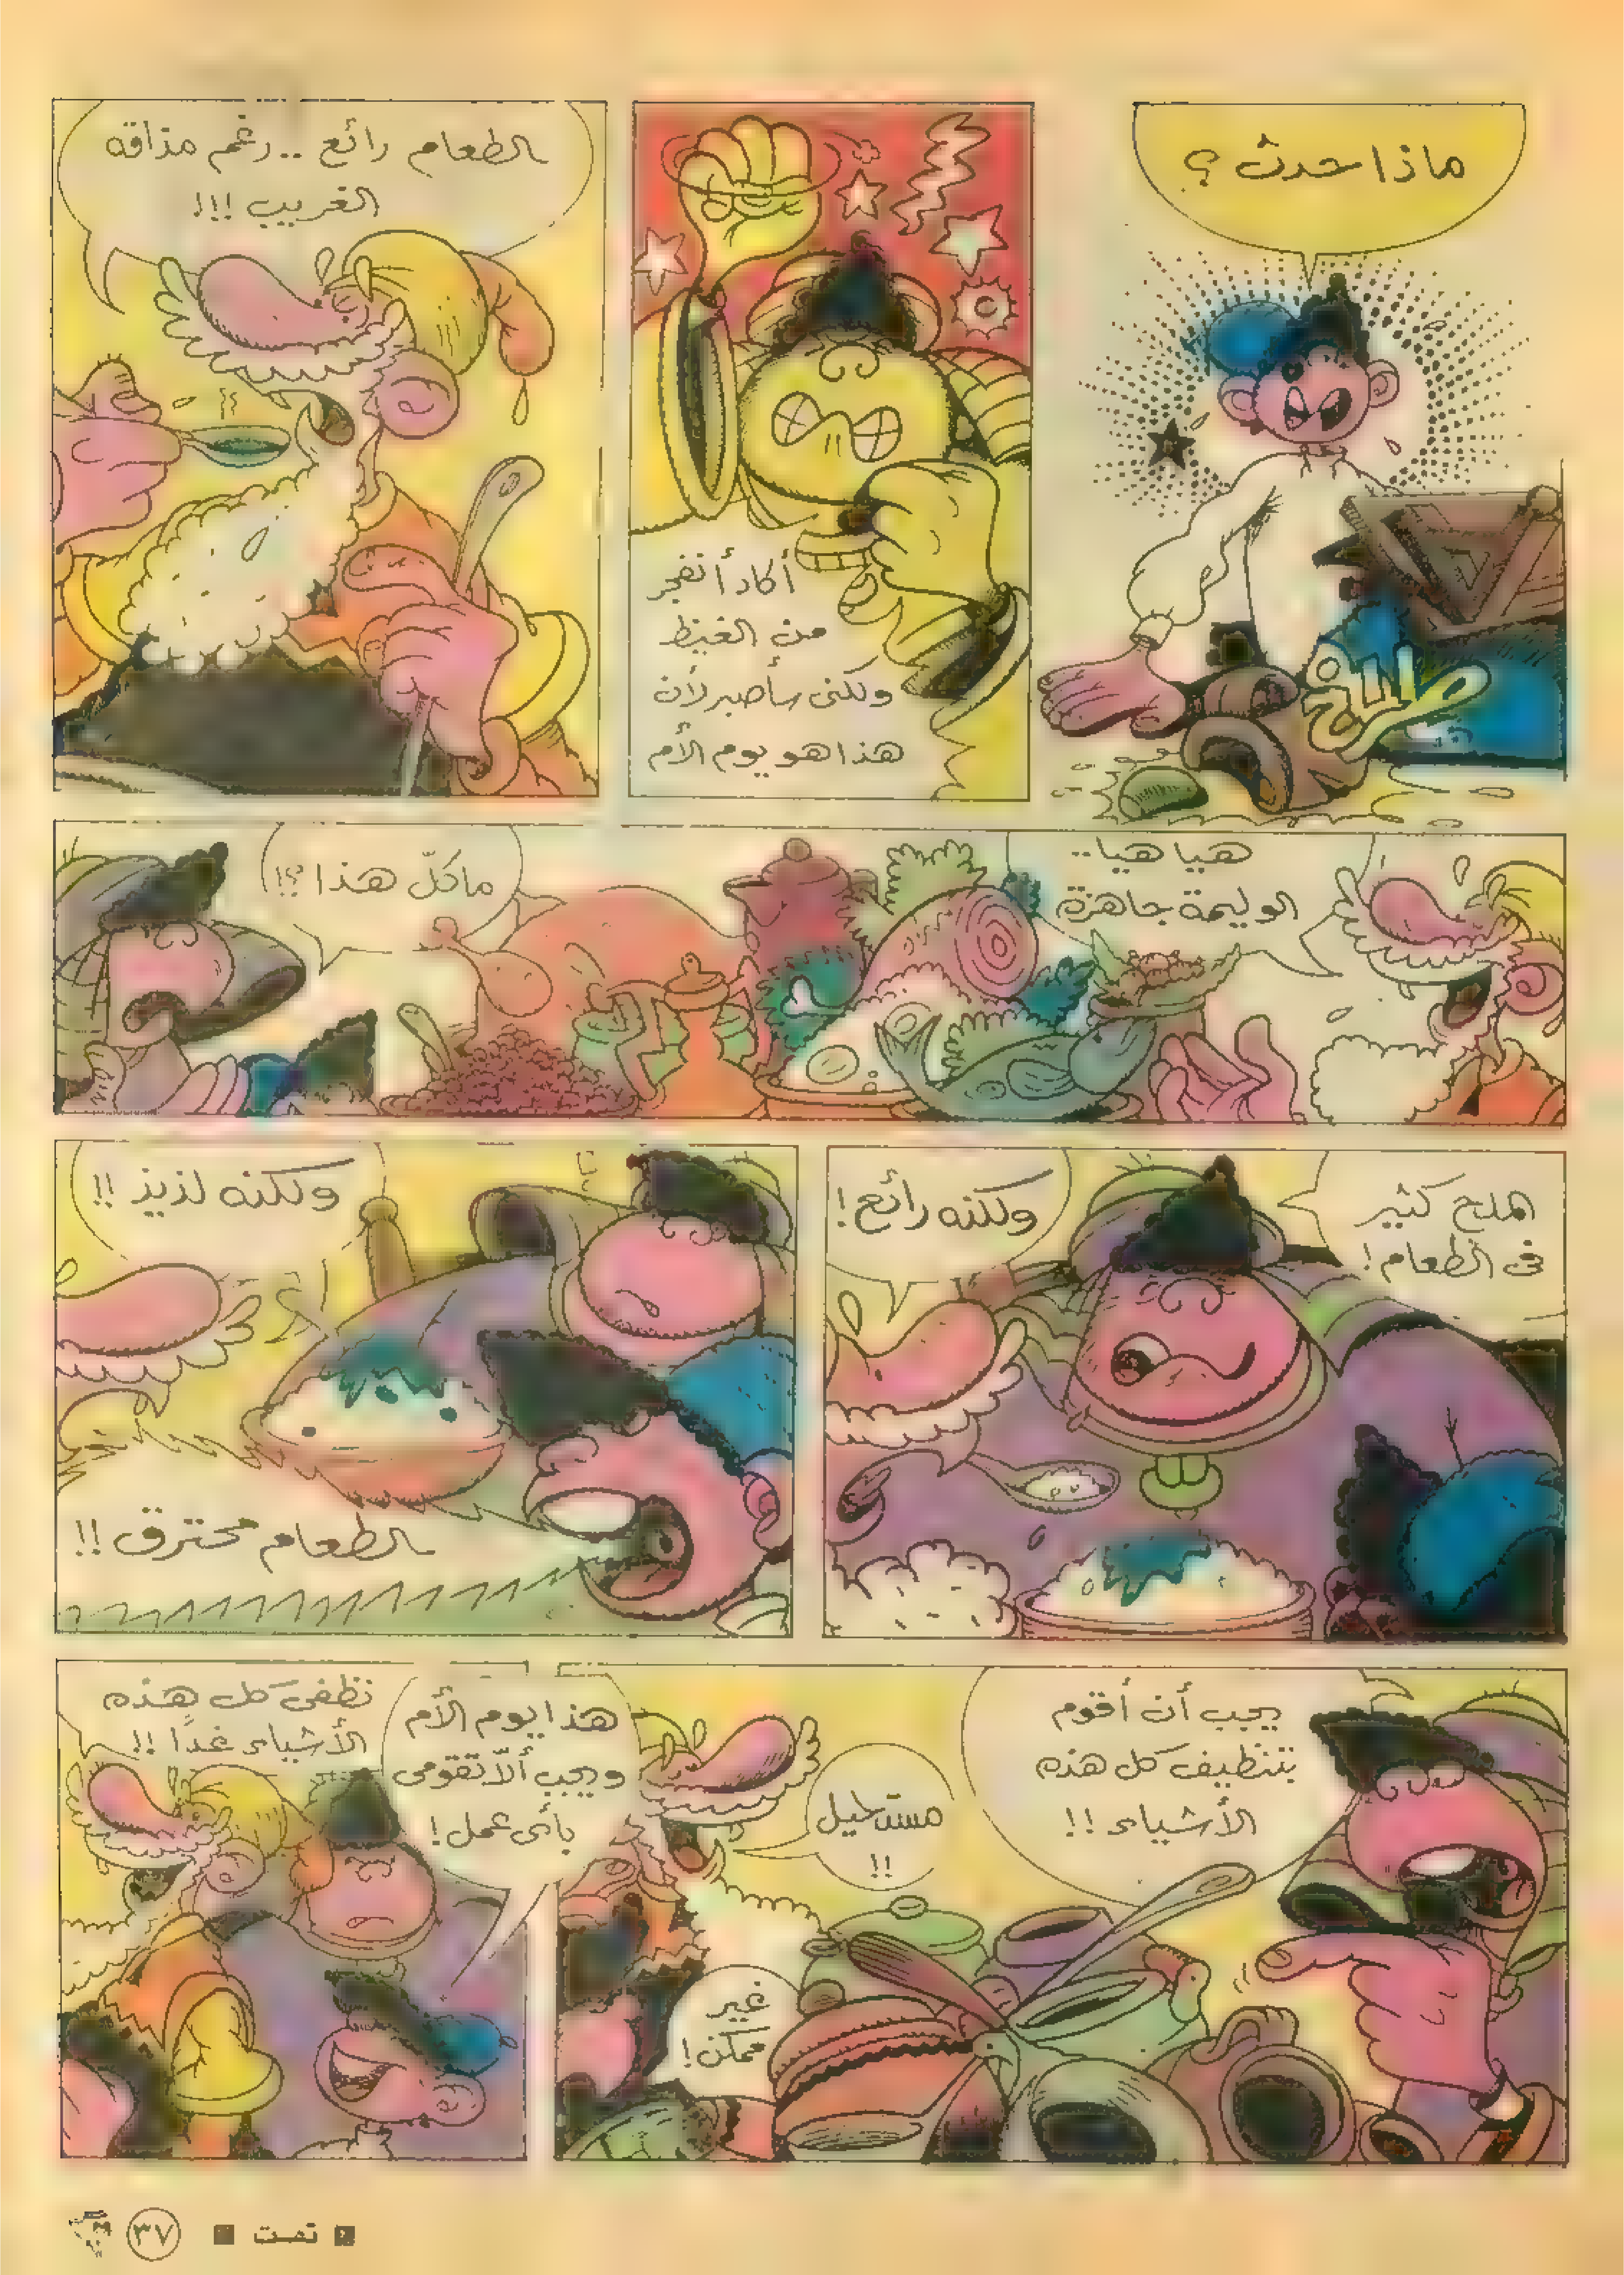 ماذا حدث ؟
أكاد أنفجر
من الغيظ
ولكنى سأصبر لأن
هذا هو يوم الأم
الطعام رائع .. رغم مذاقه
الغريب !!!
هيا هيا..
الوليمة جاهزة
ما كلّ هذا ؟!
الملح كثير
فى الطعام !
ولكنه رائع !
ولكنه لذيذ !!
الطعام محترق !!
يجب أن أقوم
بتنظيف كل هذه
الأشياء !!
مستحيل
!!
غير
ممكن !
هذا يوم الأم
ويجب ألاّ تقومى
بأى عمل !
نظفى كل هذه
الأشياء غدًا !!
تمت
٣٧